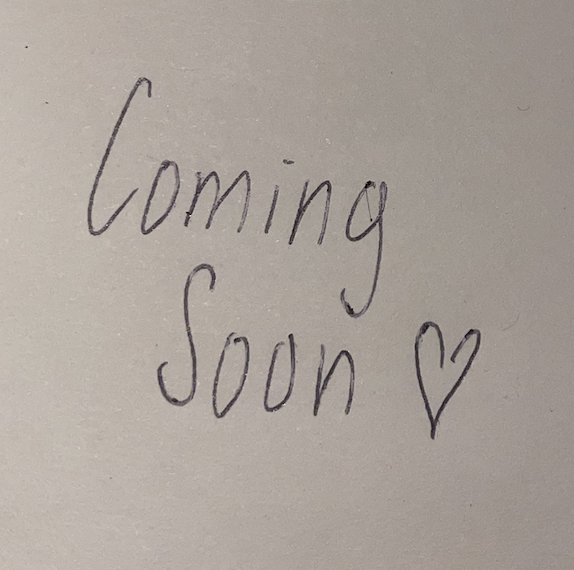 Coming
Soon ♡